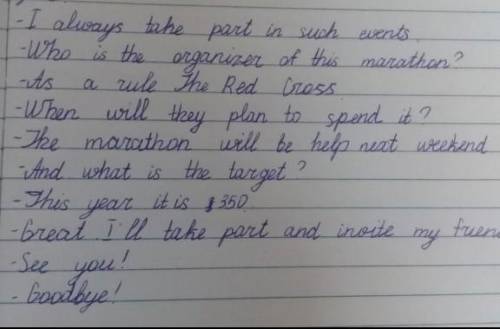 -I always take part in such events.
-Who is the organizer of this marathon?
-As a rule The Red Cross
-When will they plan to spend it?
-The marathon will be help next weekend
-And what is the target?
-This year it is $350.
-Great. I'll take part and invite my frien
-See you!
-Goodbye!